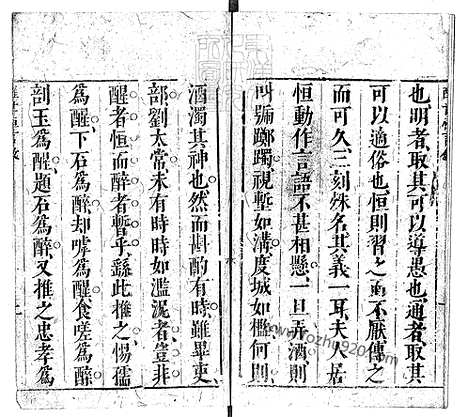 也明者取其可以導愚也通者取其
可以適俗也恒則習之而不厭傳之
而可久三刻殊名其義一耳夫人居
恒動作言語不甚相懸一旦弄酒則
叫號躑躅視塹如溝度城如檻何則
酒濁其神也然而斟酌有時雖畢吏
部劉太常未有時時如濫泥者豈非
醒者恒而醉者暫乎繇此推之惕孺
為醒下石為醉却嘑為醒食嗟為醉
剖玉為醒題石為醉又推之忠孝為